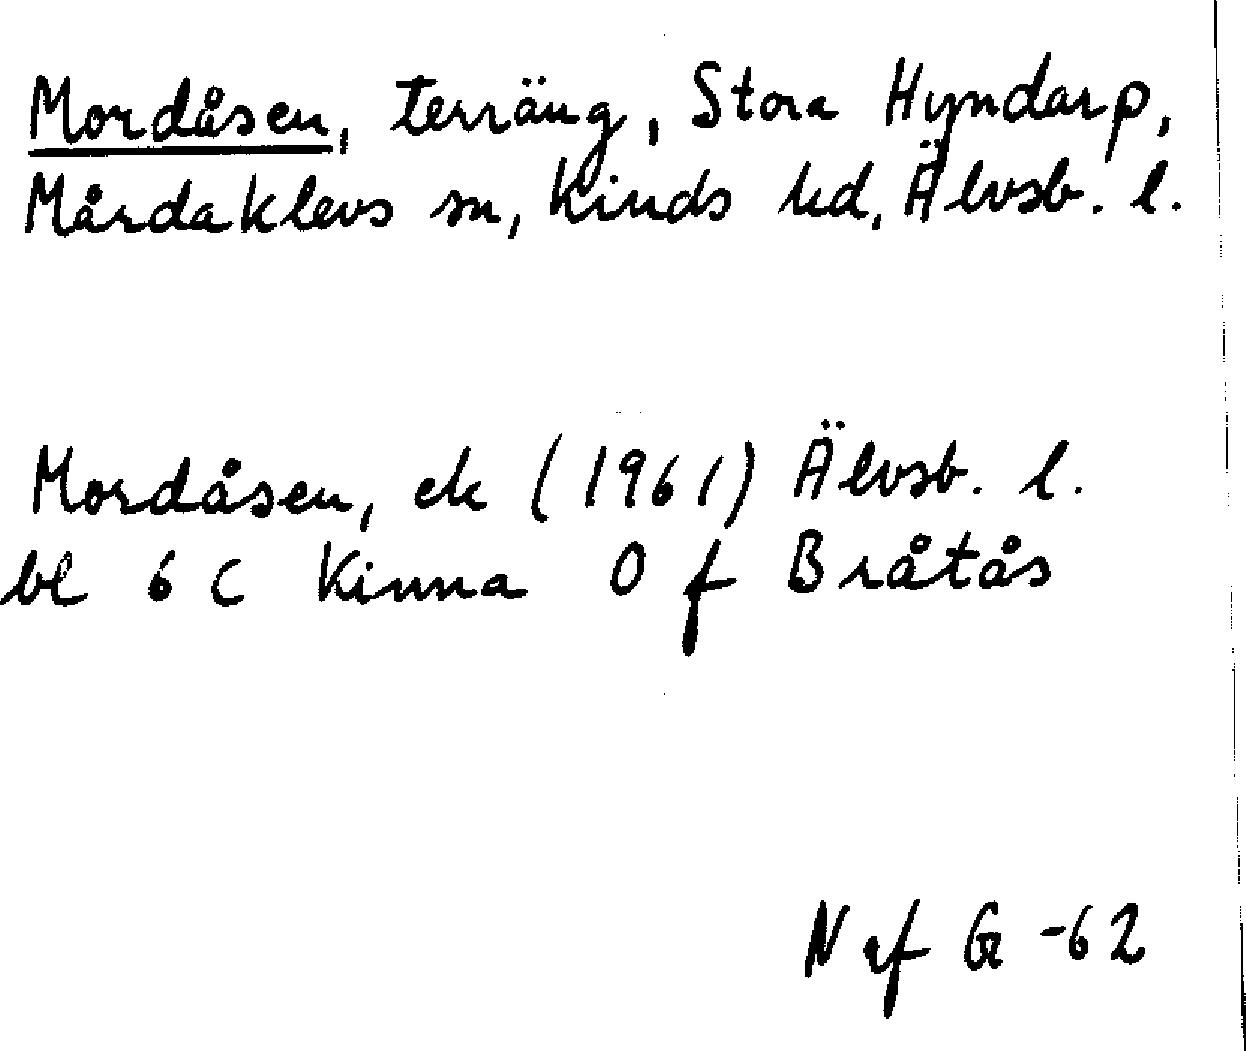 Mordåsen, terräng, Stora Hyndarp,
Mårdaklevs sn, Kinds hd, Älvsb. l.
Mordåsen, ek (1961) Älvsb. l.
bl 6 C Kinna O f Bråtås
Naf G -62